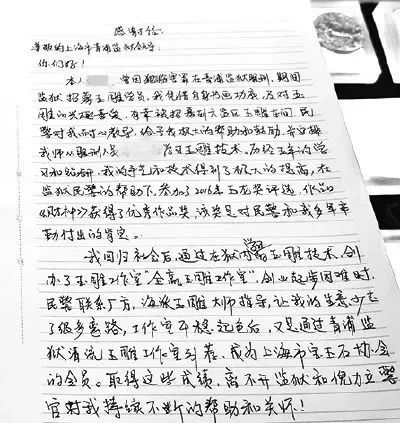 感谢信
尊敬的上海市青浦监狱领导
你们好!
本人 曾因犯 罪在青浦监狱服刑,期间
监狱招募玉雕学员,我凭借自身书画功底,及对玉
雕的兴趣喜爱,有幸被招募到六监区玉雕车间.民
警对我耐心教导,给予我极大的帮助和鼓励,并安排
我师从服刑人员 学习玉雕技术,历经五年的学
习和钻研,我的手艺和技术得到了极大的提高,在
监狱民警的帮助下,参加了2016年玉龙奖评选,作品
《财神》获得了优秀作品奖,该奖是对民警和我多年辛
勤付出的肯定。
我回归社会后,通过在狱内所学玉雕技术,创
办了玉雕工作室“金赢玉雕工作室”,创业起步困难时,
民警联系厂方,海派玉雕大师指导,让我的生意少走
了很多弯路,工作室平稳起色后,又是通过青浦监
狱清流玉雕工作室引荐,成为上海市宝玉石协会
的会员。取得这些成绩,离不开监狱和倪力立警
官对我持续不断的帮助和关怀!